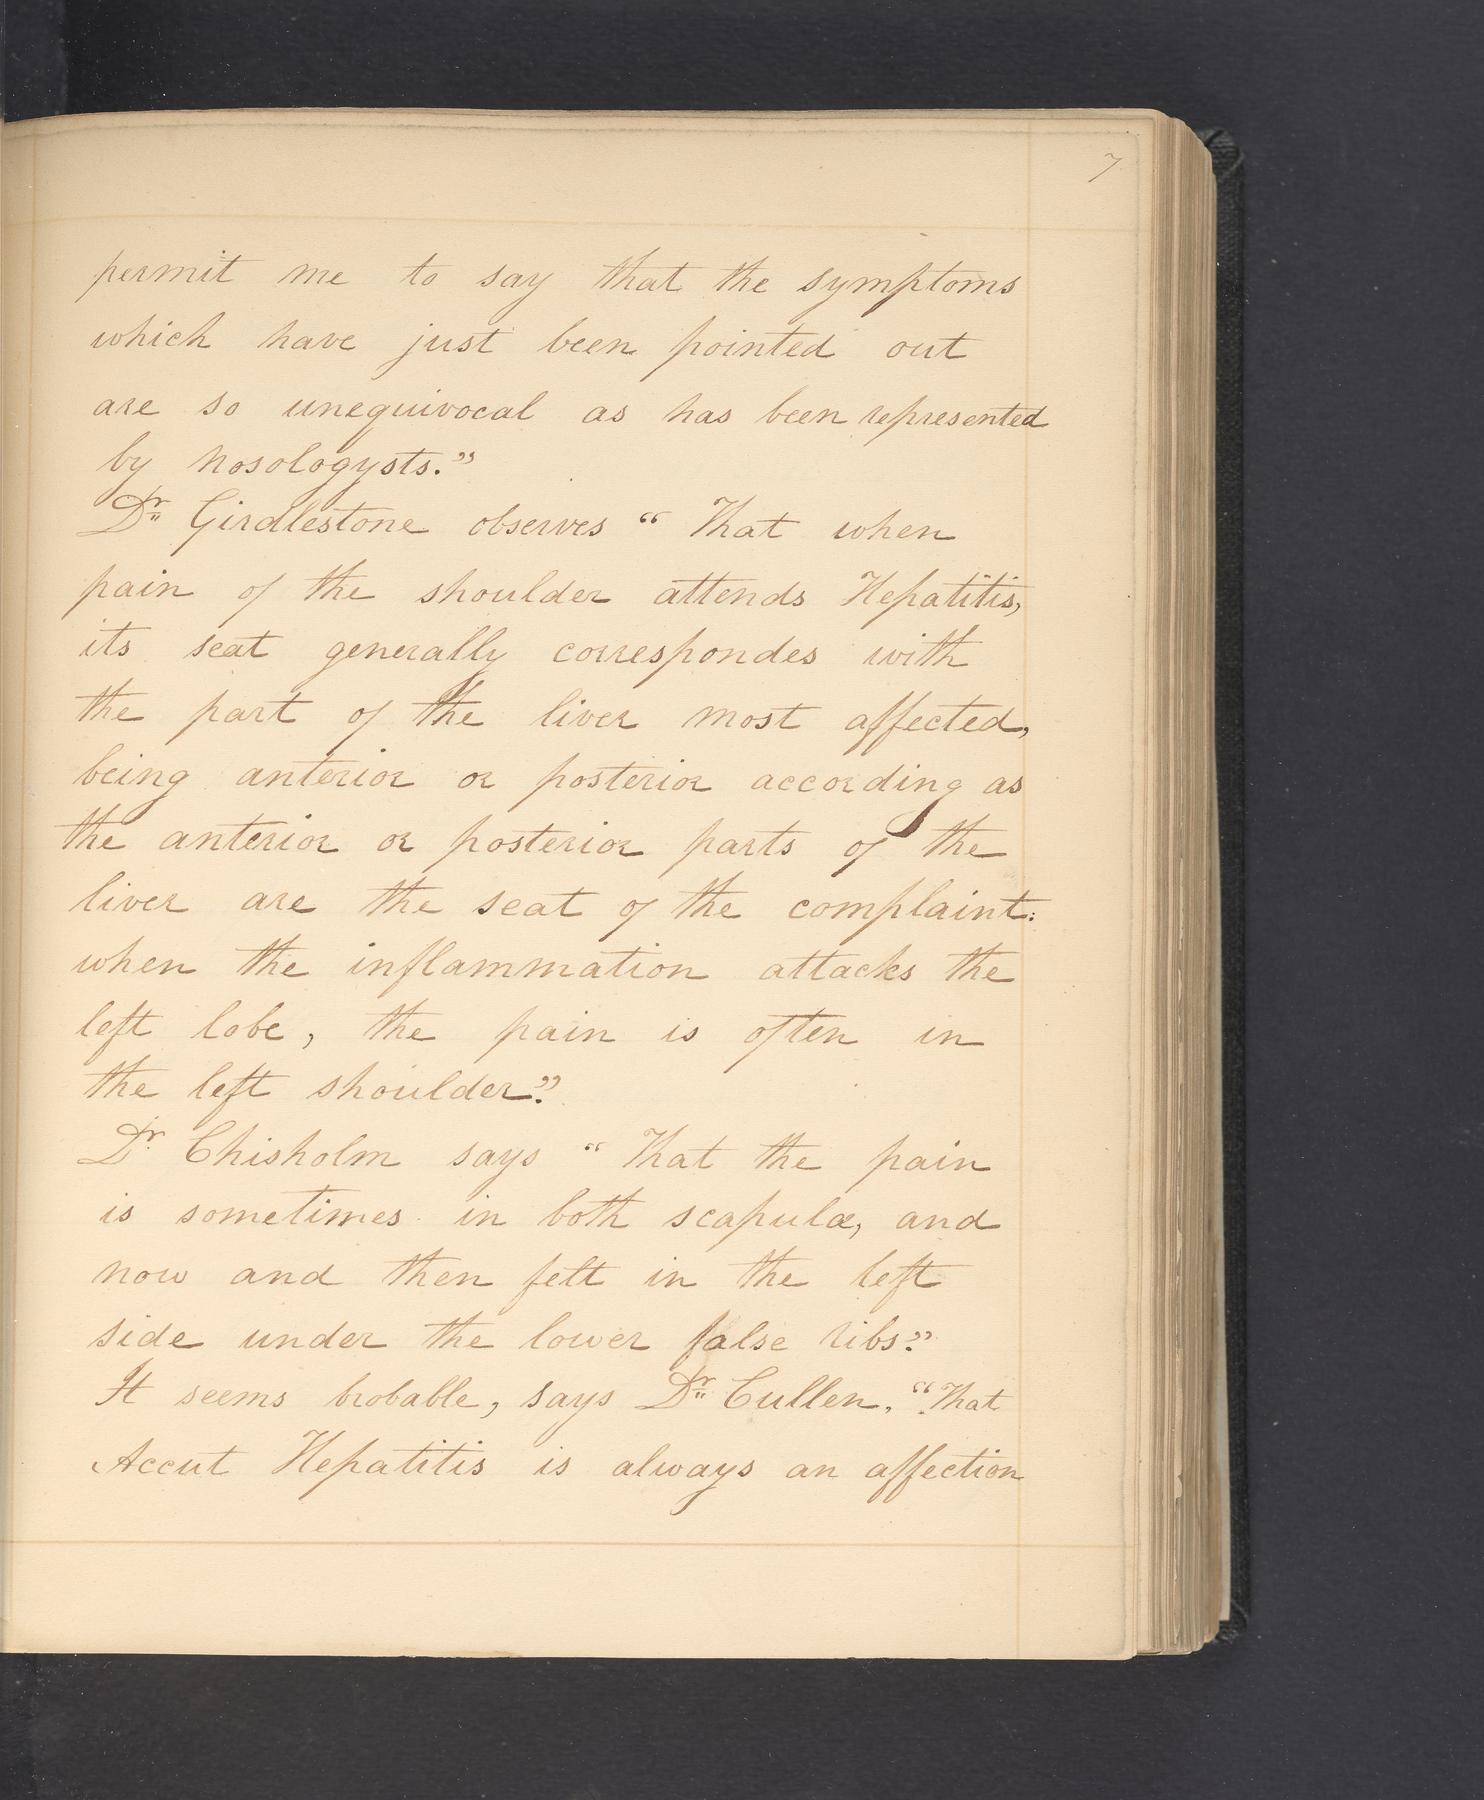 7
permit me to say that the symptoms
which have just been pointed out
are so unequivocal as has been represented
by nosologysts."
Dr. Girdlestone observes "That when
pain of the shoulder attends Hepatitis,
its seat generally correspondes with
the part of the liver most affected,
being anterior or posterior according as
the anterior or posterior parts of the
liver are the seat of the complaint:
when the inflammation attacks the
left lobe, the pain is often in
the left shoulder."
Dr. Chisholm says "That the pain
is sometimes in both scapulæ, and
now and then felt in the left
side under the lower false ribs."
It seems brobable, says Dr. Cullen, "That
Accut Hepatitis is always an affection